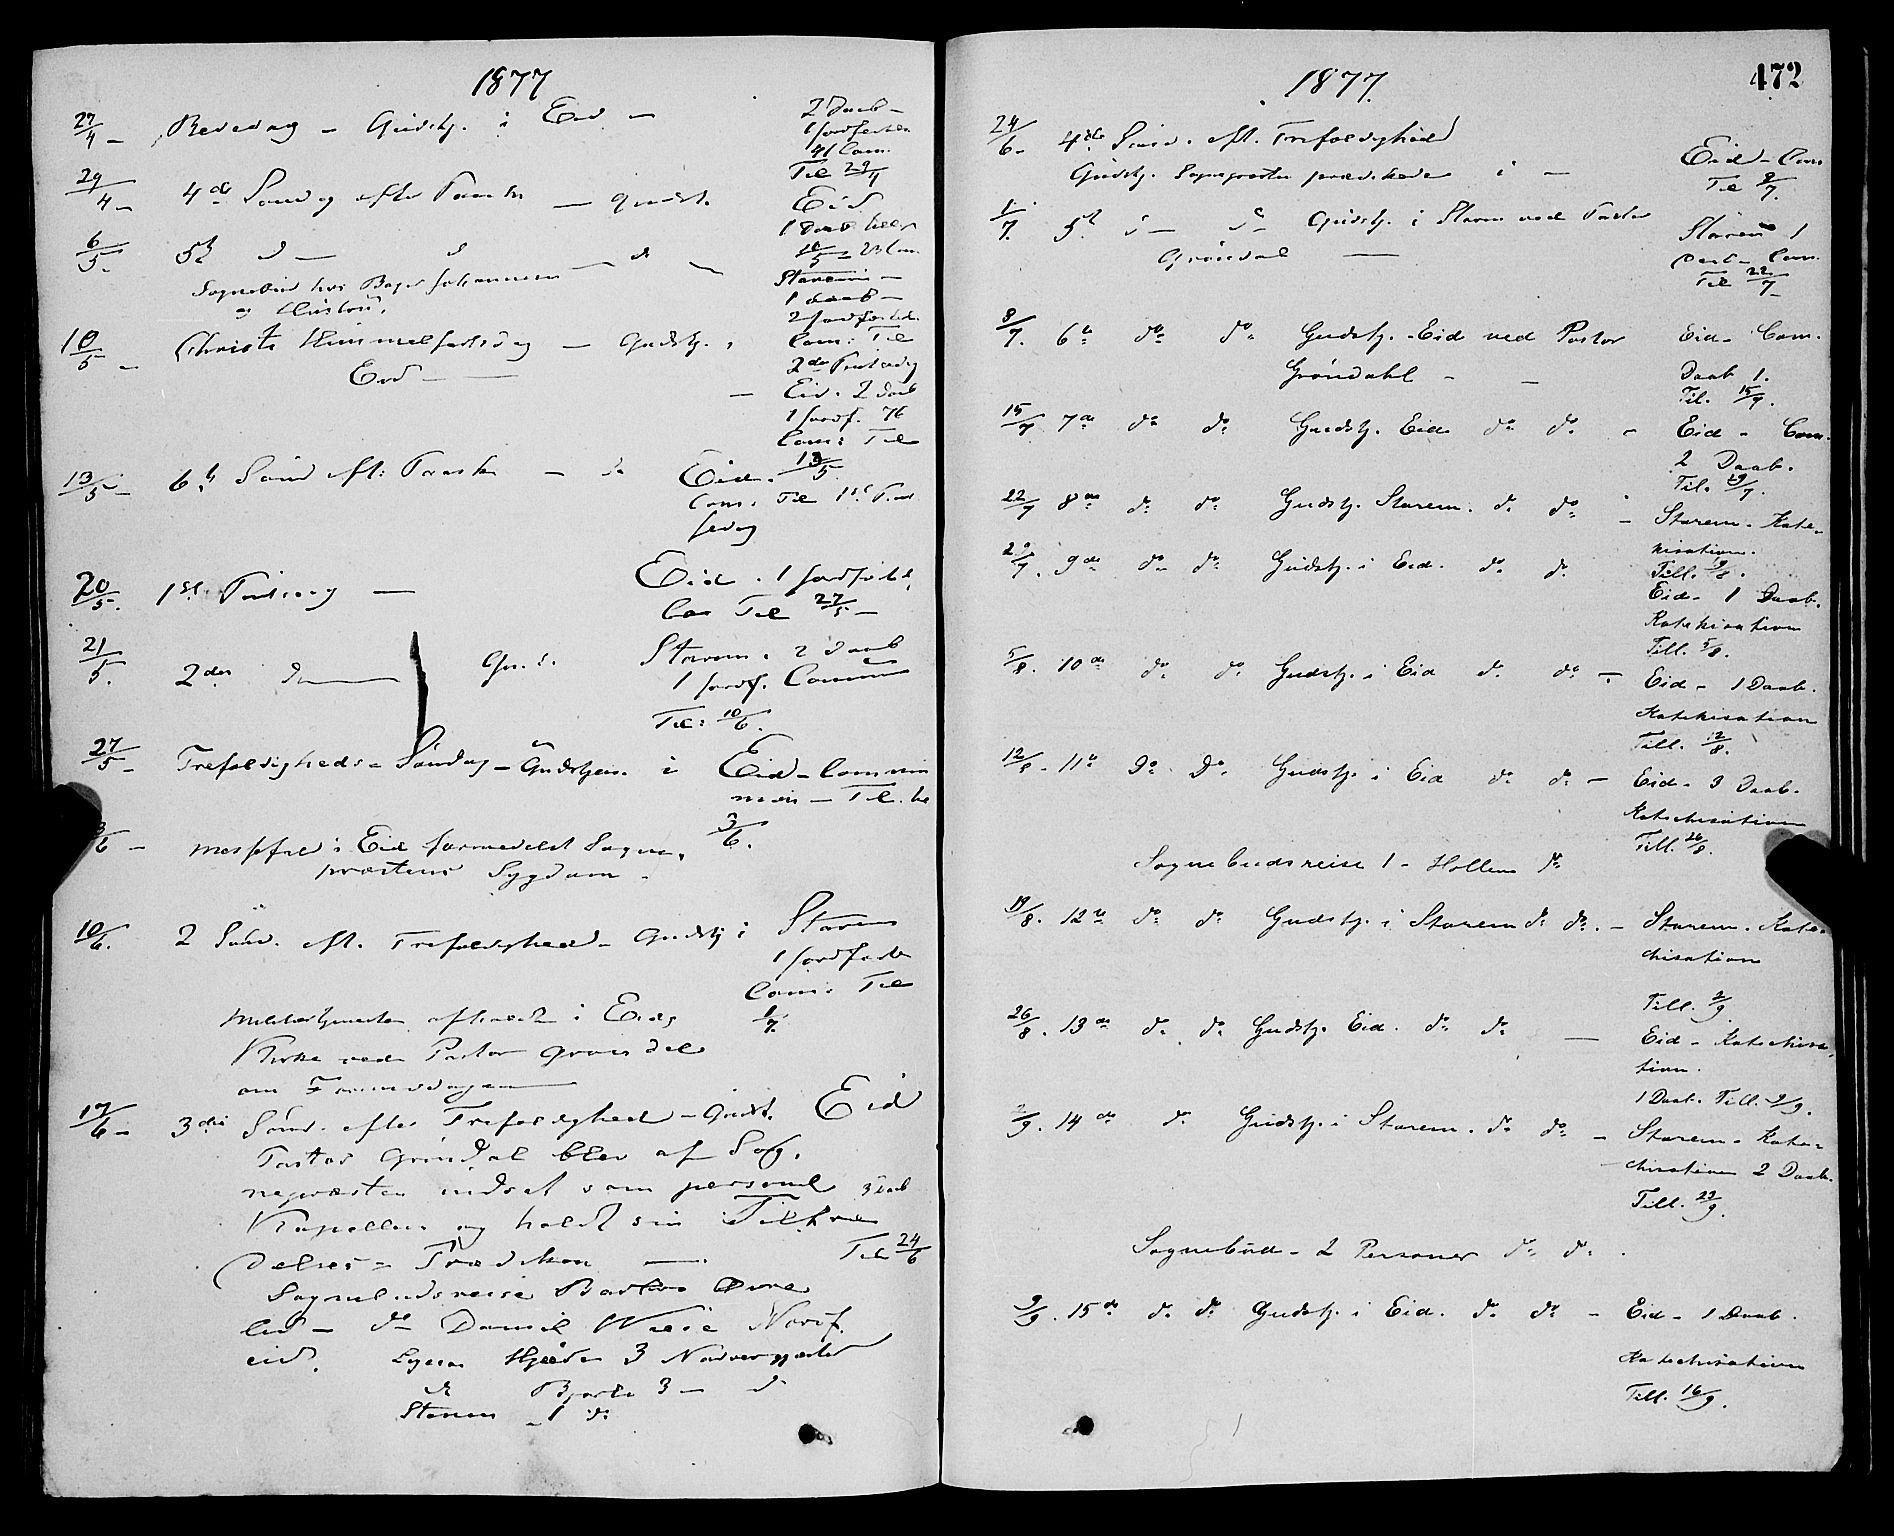 1877
27/4 - Bededag - Gudstj. i Eid - 2 Daab -
1 Jordfestelse
41 Com.
Til 29/4
29/4 - 4de Søndag efter Paaske - Gudst. Eid
1 Daab
6/5. 5te d - d - d -
10/5 - Com.
Sognebud hos Johannesen og Hustru.
Starem -
1 Daab -
2 Jordfestelse
Com: Til
2den Pintsedag
10/5 - Christi Himmelfartsdag - Gudstj. i
Eid - - Eid. 2 Daab
1 Jordf. 76
Com: Til
13/5
13/5 - 6te Sønd eft: Paaske - d Eid.
Com: Til 1ste Pind
sedag
20/5. 1ste Pintsedag - Eid. 1 Jordfæstelse
Com Til 27/5 -
21/5. 2den d - Gu.d. Starem. 2 Daab
1 Jordf. Commun
Til: 10/6.
27/5 - Trefoldigheds-Søndag - Gudstjen. i Eid - Commun
nion - Til.
3/6.
3/6 - Messefald i Eid formedelst Sogne-
præstens Sygdom -
10/6. 2 Sønd. eft. Trefoldighed - Gudstj i Starem
1 Jordfæstelse
Com: Til
1/7.
afholdt i Eids
Kirke ved Pastor Grøndal
om Formiddagen
17/6 - 3die Sønd. efter Trefoldighed - Gudst. Eid
Pastor Grøndal blev af Sog-
nepræsten indsat som personel 3 Daab
Kapellan og holdt sin Tiltræ
delses-Prædiken - Til 24/6
Sognebudsreise
- do Daniel Wiese Nordf.
eid. Hjelle 3 Nadvergjæster
do 3 - d
Starem - 1 do
1877.
472
24/6 - 4de Sønd. eft. Trefoldighed
Gudstj. Sognepræsten prædikede i - Eid - Com
Til 8/7.
1/7. 5te d - do Gudstj. i Starem ved Pastor
Grøndal - Starem 1
Daab - Com.
Til 22/7 -
8/7. 6te do do Gudstj. Eid ved Pastor
Grøndahl - - Eid - Com.
Daab 1.
Til. 15/7.
15/7 7de do do Gudstj. Eid do do - Eid - Com.
2 Daab.
Til. 29/7.
22/7 8de do do Gudstj. Starem. do do - Starem - Kate-
kisation.
Till. 19/8.
29/7. 9de do do Gudstj. i Eid. do do Eid - 1 Daab.
Katekisation
Till. 5/8.
5/8. 10de do do Gudstj. i Eid do do - Eid - 1 Daab.
Katekisation
Till. 12/8.
12/8 - 11te do do Gudstj. i Eid do do - Eid - 3 Daab.
Katechisation
Till. 26/8.
Sognebudsreise 1 - Hollen do
19/8. 12te do do Gudstj. i Starem do do. - Starem - Kate-
chisation
Till. 2/9.
26/8. 13de do do Gudstj. Eid. do do - Eid - Katechisa-
tion.
1 Daab. Till. 9/9.
2/9. 14de do Gudstj. i Starem. do do - Starem - Kate-
chisation 2 Daab.
Till. 23/9.
Sognebud - 2 Personer do do.
9/9. 15de do do Gudstj. i Eid. do do - Eid - 1 Daab.
Katechisation
Till. 16/9.